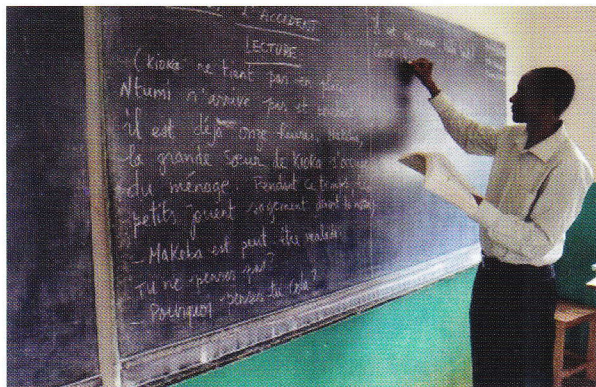 L'ACCIDENT
LECTURE
(Kioka ne tient pas en place
Ntumi n'arrive pas et
il est déjà onze heures,
la grande sœur de Kioka
du ménage. Pendant ce temps,
petits jouent sagement devant la
– Makeba est peut être malade.
Tu ne penses pas?
– Pourquoi penses tu cela?
Il est